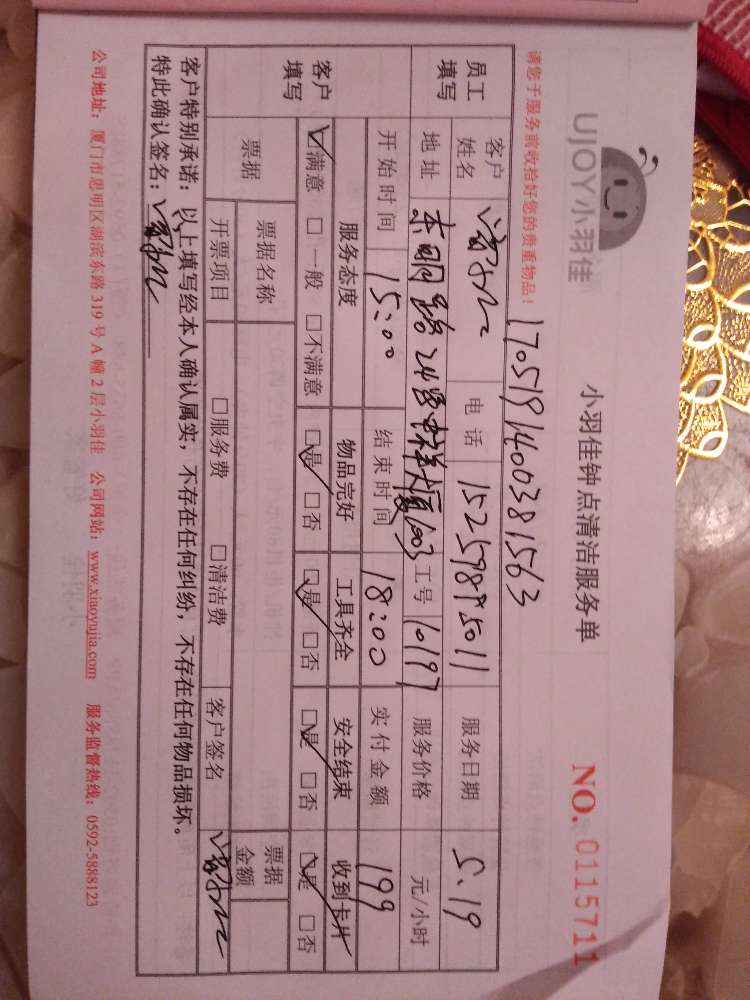 UJOY小羽佳
小羽佳钟点清洁服务单
NO. 0115711
请您于服务前收拾好您的贵重物品！
1705191400381563
员工填写
客户姓名
电话 15259895011
服务日期 5.19
地址
工号 10197
服务价格 元/小时
开始时间 15:00
结束时间 18:00
实付金额 199
客户填写
服务态度 物品完好 工具齐全 安全结束 收到卡片
☑满意 □一般 □不满意 ☑是 □否 ☑是 □否 ☑是 □否 ☑是 □否
票据
票据名称
票据金额
开票项目 □服务费 □清洁费 客户签名
客户特别承诺：以上填写经本人确认属实，不存在任何纠纷，不存在任何物品损坏。
特此确认签名：
公司地址：厦门市思明区湖滨东路 319 号 A 幢 2 层小羽佳 公司网站：www.xiaoyujia.com 服务监督热线：0592-5888123